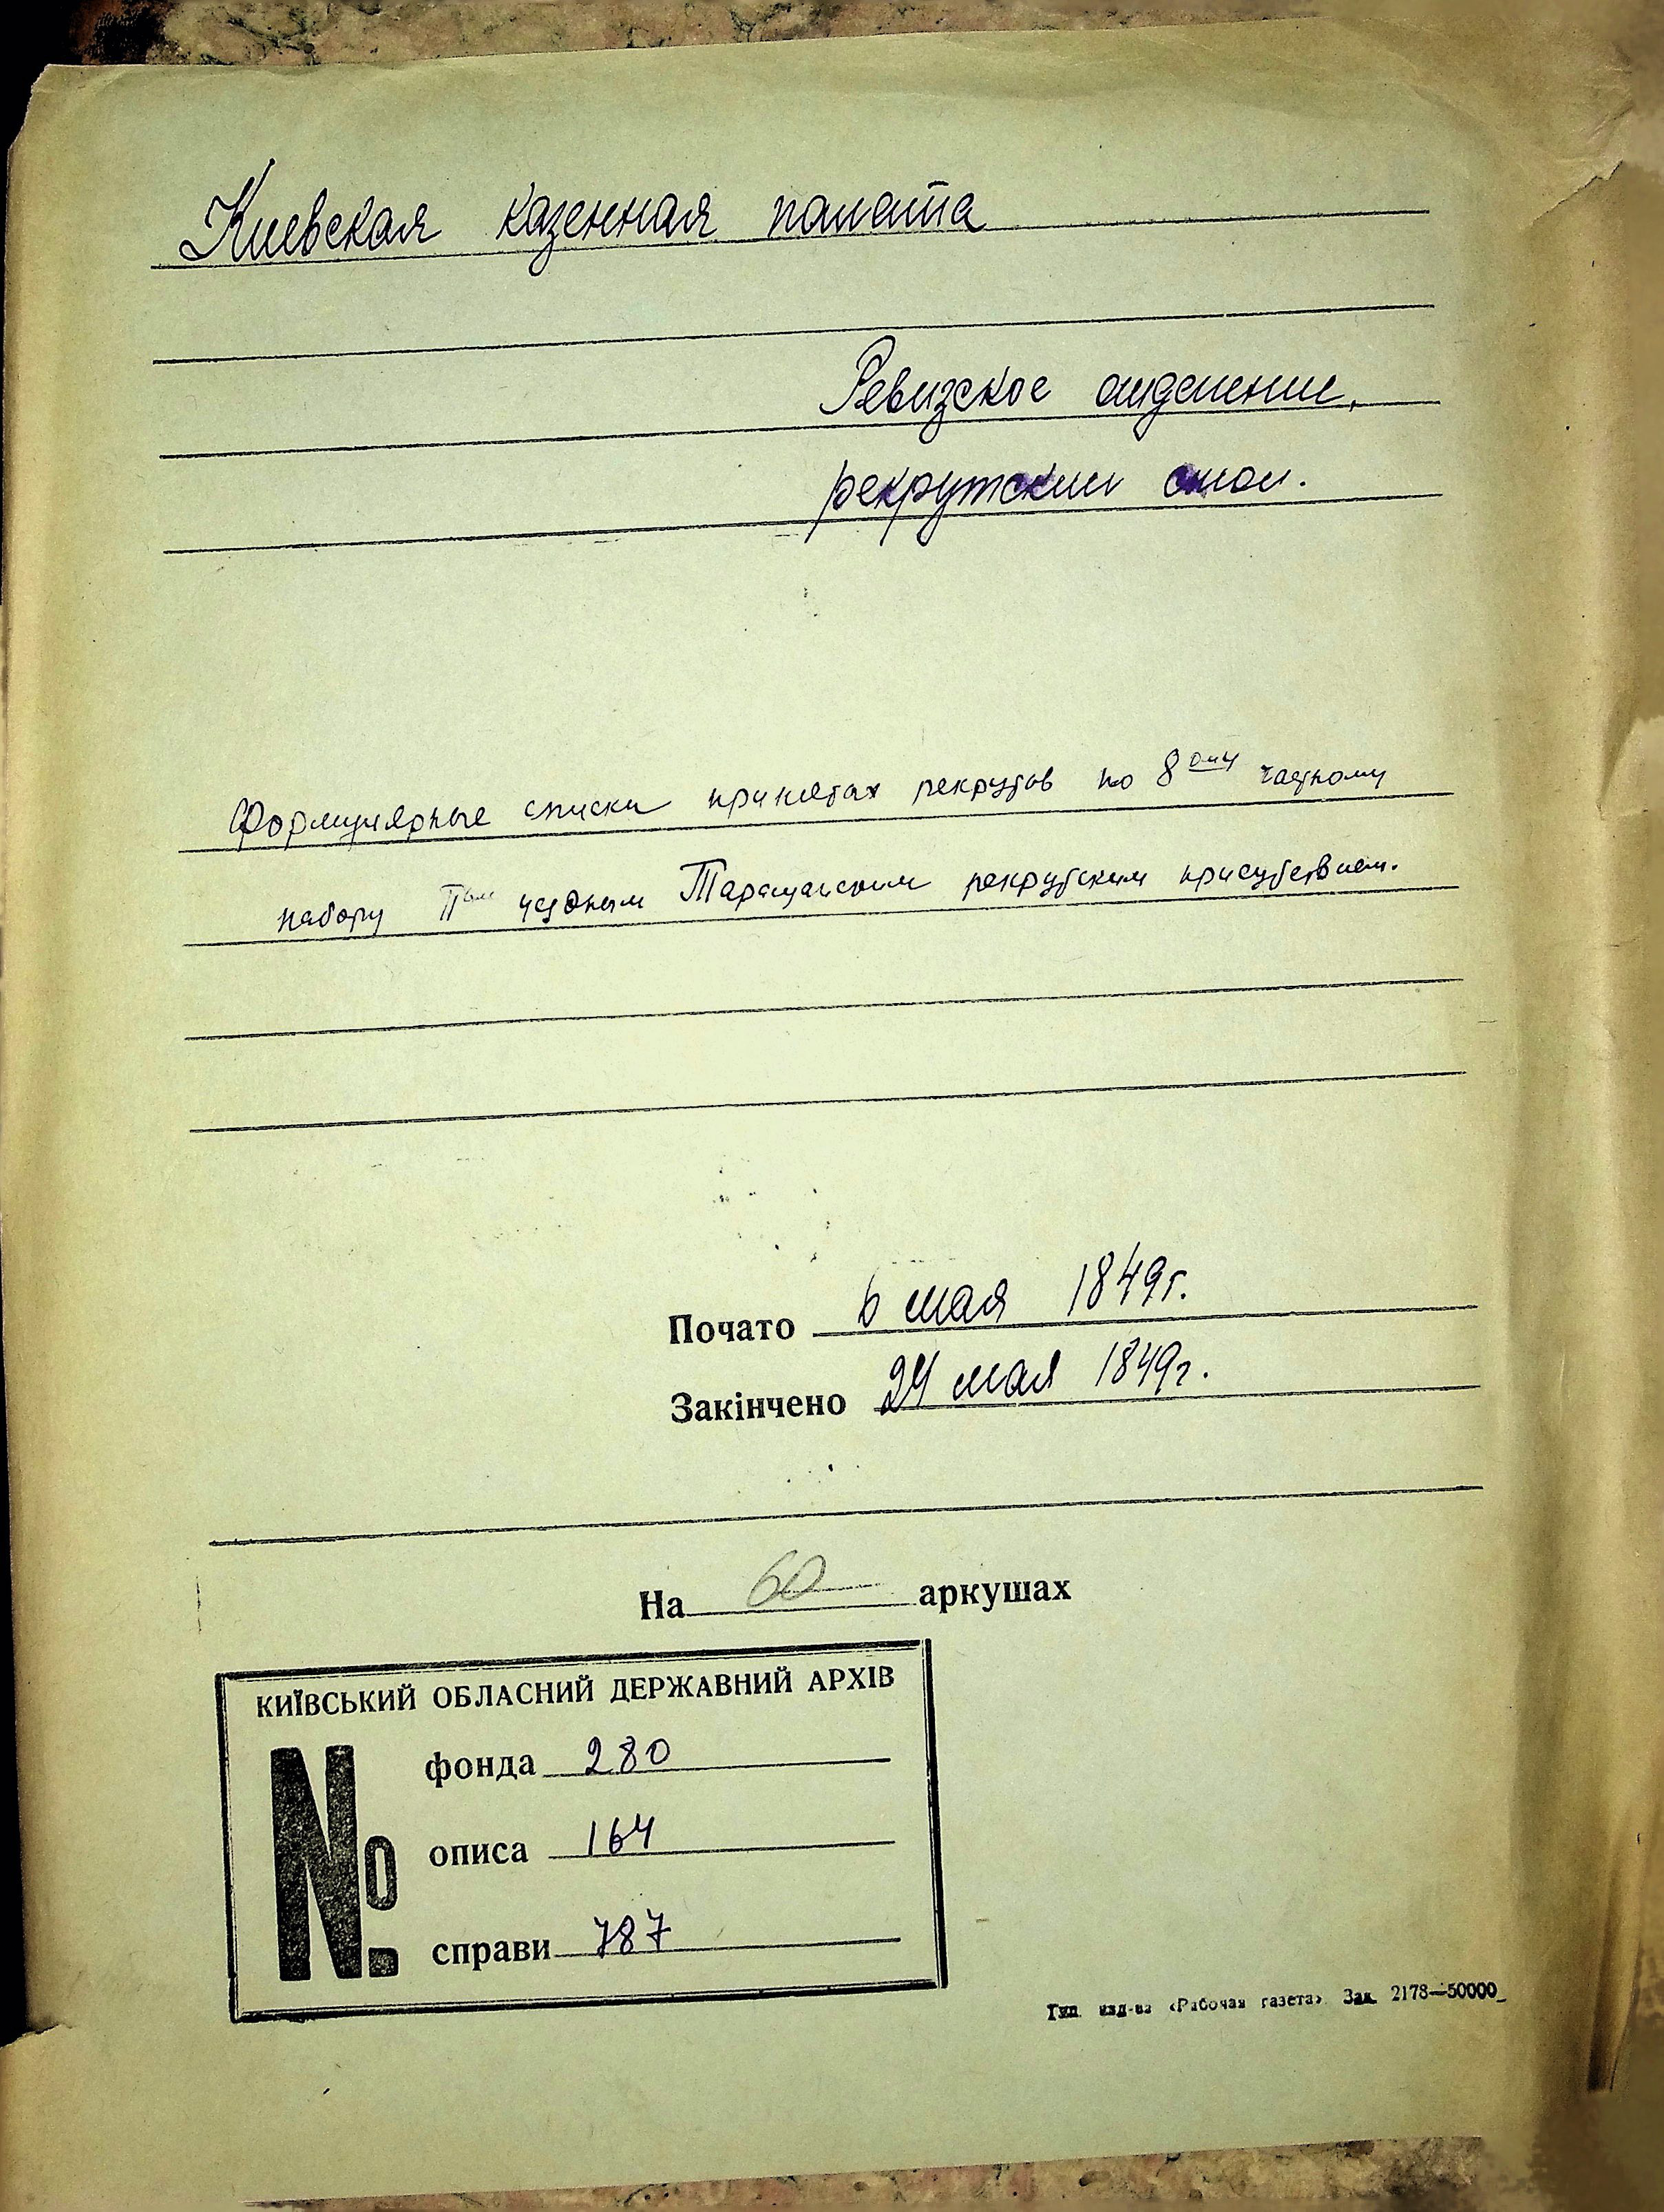 Киевская казенная палата
Ревизское отделение,
рекрутский стол.
Формулярные списки принятых рекрутов по 8ому частному
набору IIым уездным Таращанским рекрутским присутствием.
Почато 6 мая 1849г.
Закінчено 24 мая 1849г.
На 60 аркушах
КИЇВСЬКИЙ ОБЛАСНИЙ ДЕРЖАВНИЙ АРХІВ
№
фонда 280
описа 164
справи 787
Тип. изд-ва «Рабочая газета» Зак. 2178—50000